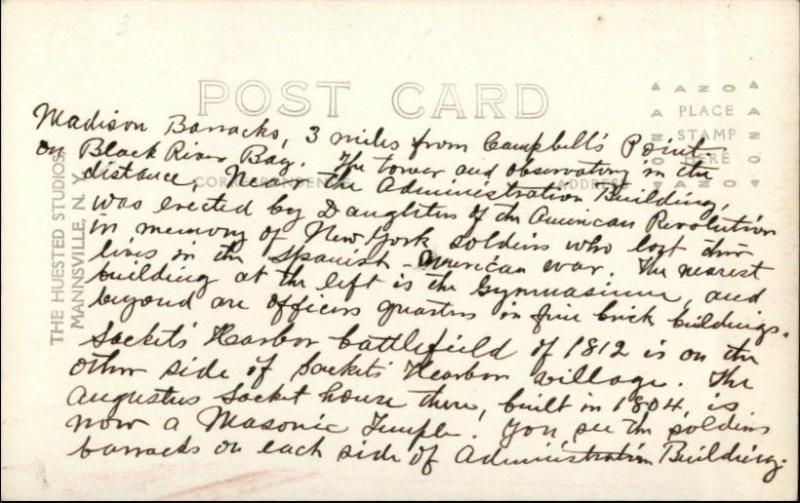 3
POST CARD
AZO
PLACE
STAMP
HERE
AZO
CORRESPONDENCE
ADDRESS
THE HUESTED STUDIOS,
MANNSVILLE, N. Y.
Madison Barracks, 3 miles from Campbell's Point
on Black River Bay. The tower and observatory in the
distance, near the Administration Building,
was erected by Daughters of the American Revolution
in memory of New York soldiers who lost their
lives in the Spanish-American war. The nearest
building at the left is the Gymnasium, and
beyond are officers quarters in fine brick buildings.
Sackets Harbor battlefield of 1812 is on the
other side of Sackets Harbor village. The
Augustus Sacket house there, built in 1804, is
now a Masonic Temple. You see the soldiers
barracks on each side of Administration Building.